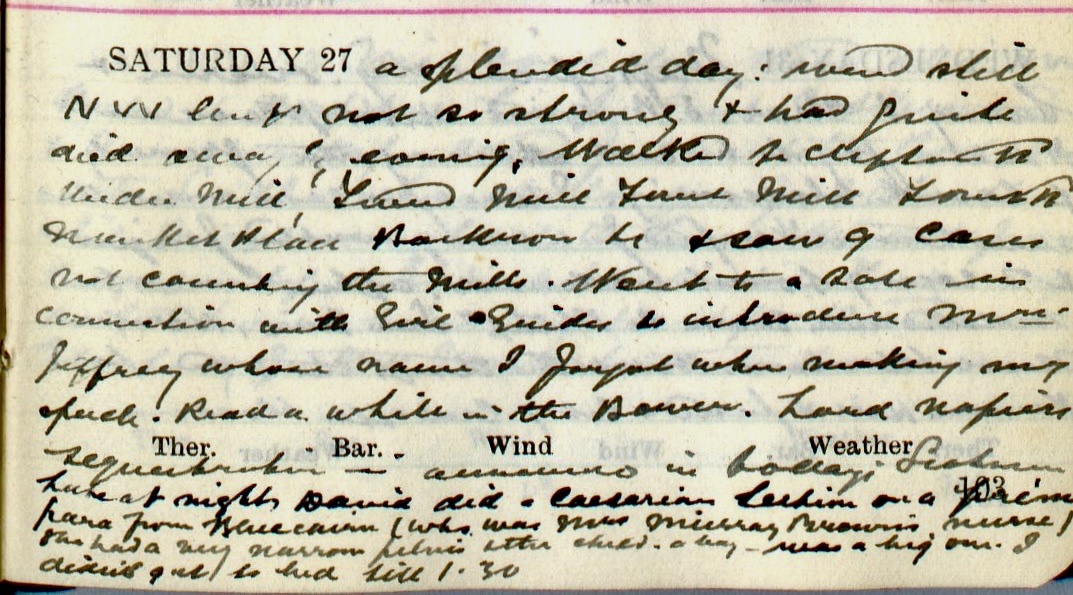 SATURDAY 27 a splendid day: wind still
NW but not so strong & had quite
died away by evening. Walked to
under Mill, Mill Mill
Market Place & saw 9 cases
not counting the Mills. Went to a sale in
connection with Girl Guides to introduce Mrs
Jeffrey whose name I forgot when making my
speech. Read a while in the Bower. Lord Napiers
Ther. Bar. Wind Weather
in todays
here at night David did a Caesarian Section on a primi
para from Bluecairn (who was Mrs Murray Brown's nurse)
she had a very narrow pelvis & the child. a boy - was a big one. I
didn't get to bed till 1.30